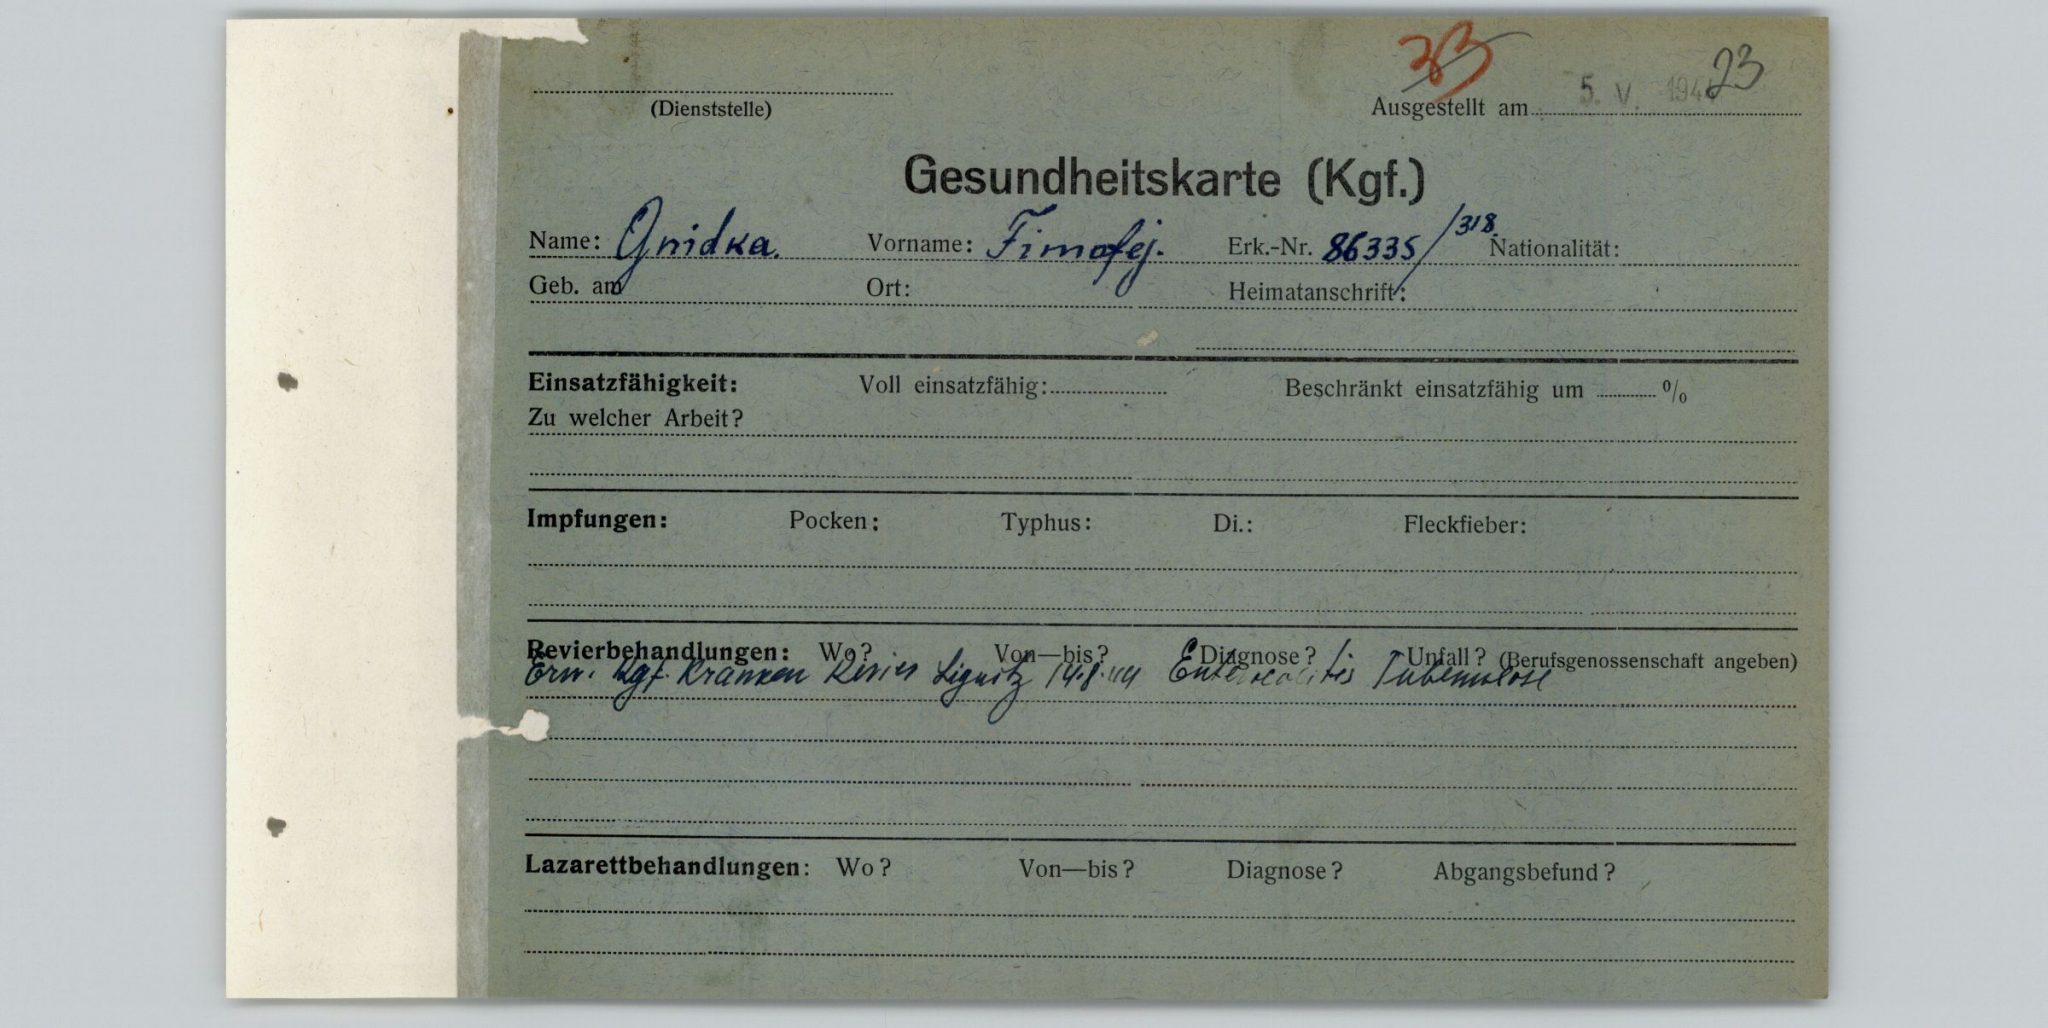 33 23
(Dienststelle) Ausgestellt am 5. V. 194
Gesundheitskarte (Kgf.)
Name: Gnidka. Vorname: Timofej. Erk.-Nr. 86335/318. Nationalität:
Geb. am Ort: Heimatanschrift:
Einsatzfähigkeit: Voll einsatzfähig: Beschränkt einsatzfähig um %
Zu welcher Arbeit?
Impfungen: Pocken: Typhus: Di.: Fleckfieber:
Revierbehandlungen: Wo? Von—bis? Diagnose? Unfall? (Berufsgenossenschaft angeben)
Erw. Kgf. Kranken Revier Lignitz 14.8.44 Enterocolitis Tuberkulose
Lazarettbehandlungen: Wo? Von—bis? Diagnose? Abgangsbefund?